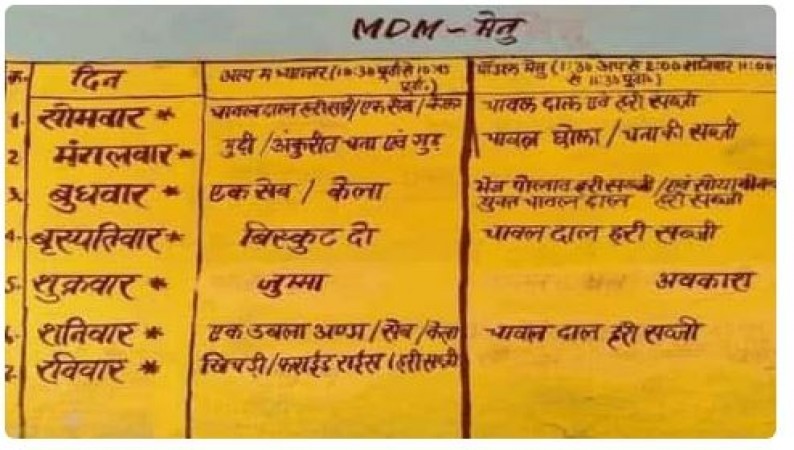 MDM - मेनु
क. दिन अल्प मध्यान्तर (10:30 पूर्वा से 10:45 पूर्वा.) मॉडल मेनु (1:30 अप से 2:00 शनिवार 11:00 से 11:30 पूर्वा.)
1. सोमवार * चावल दाल हरी सब्जी / एक सेव / केला चावल दाल एवं हरी सब्जी
2 मंगलवार * मुढ़ी / अंकुरीत चना एवं गुड़ चावल छोला / चना की सब्जी
3. बुधवार * एक सेव / केला भेज पोलाव हरी सब्जी / एवं सोयाबीन युक्त चावल दाल हरी सब्जी
4. बृस्पतिवार * बिस्कुट दो चावल दाल हरी सब्जी
5. शुक्रवार * जुम्मा अवकाश
6. शनिवार * एक उबला अण्डा / सेव / केला चावल दाल हरी सब्जी
7. रविवार * खिचड़ी / फराईड राईस / हरी सब्जी